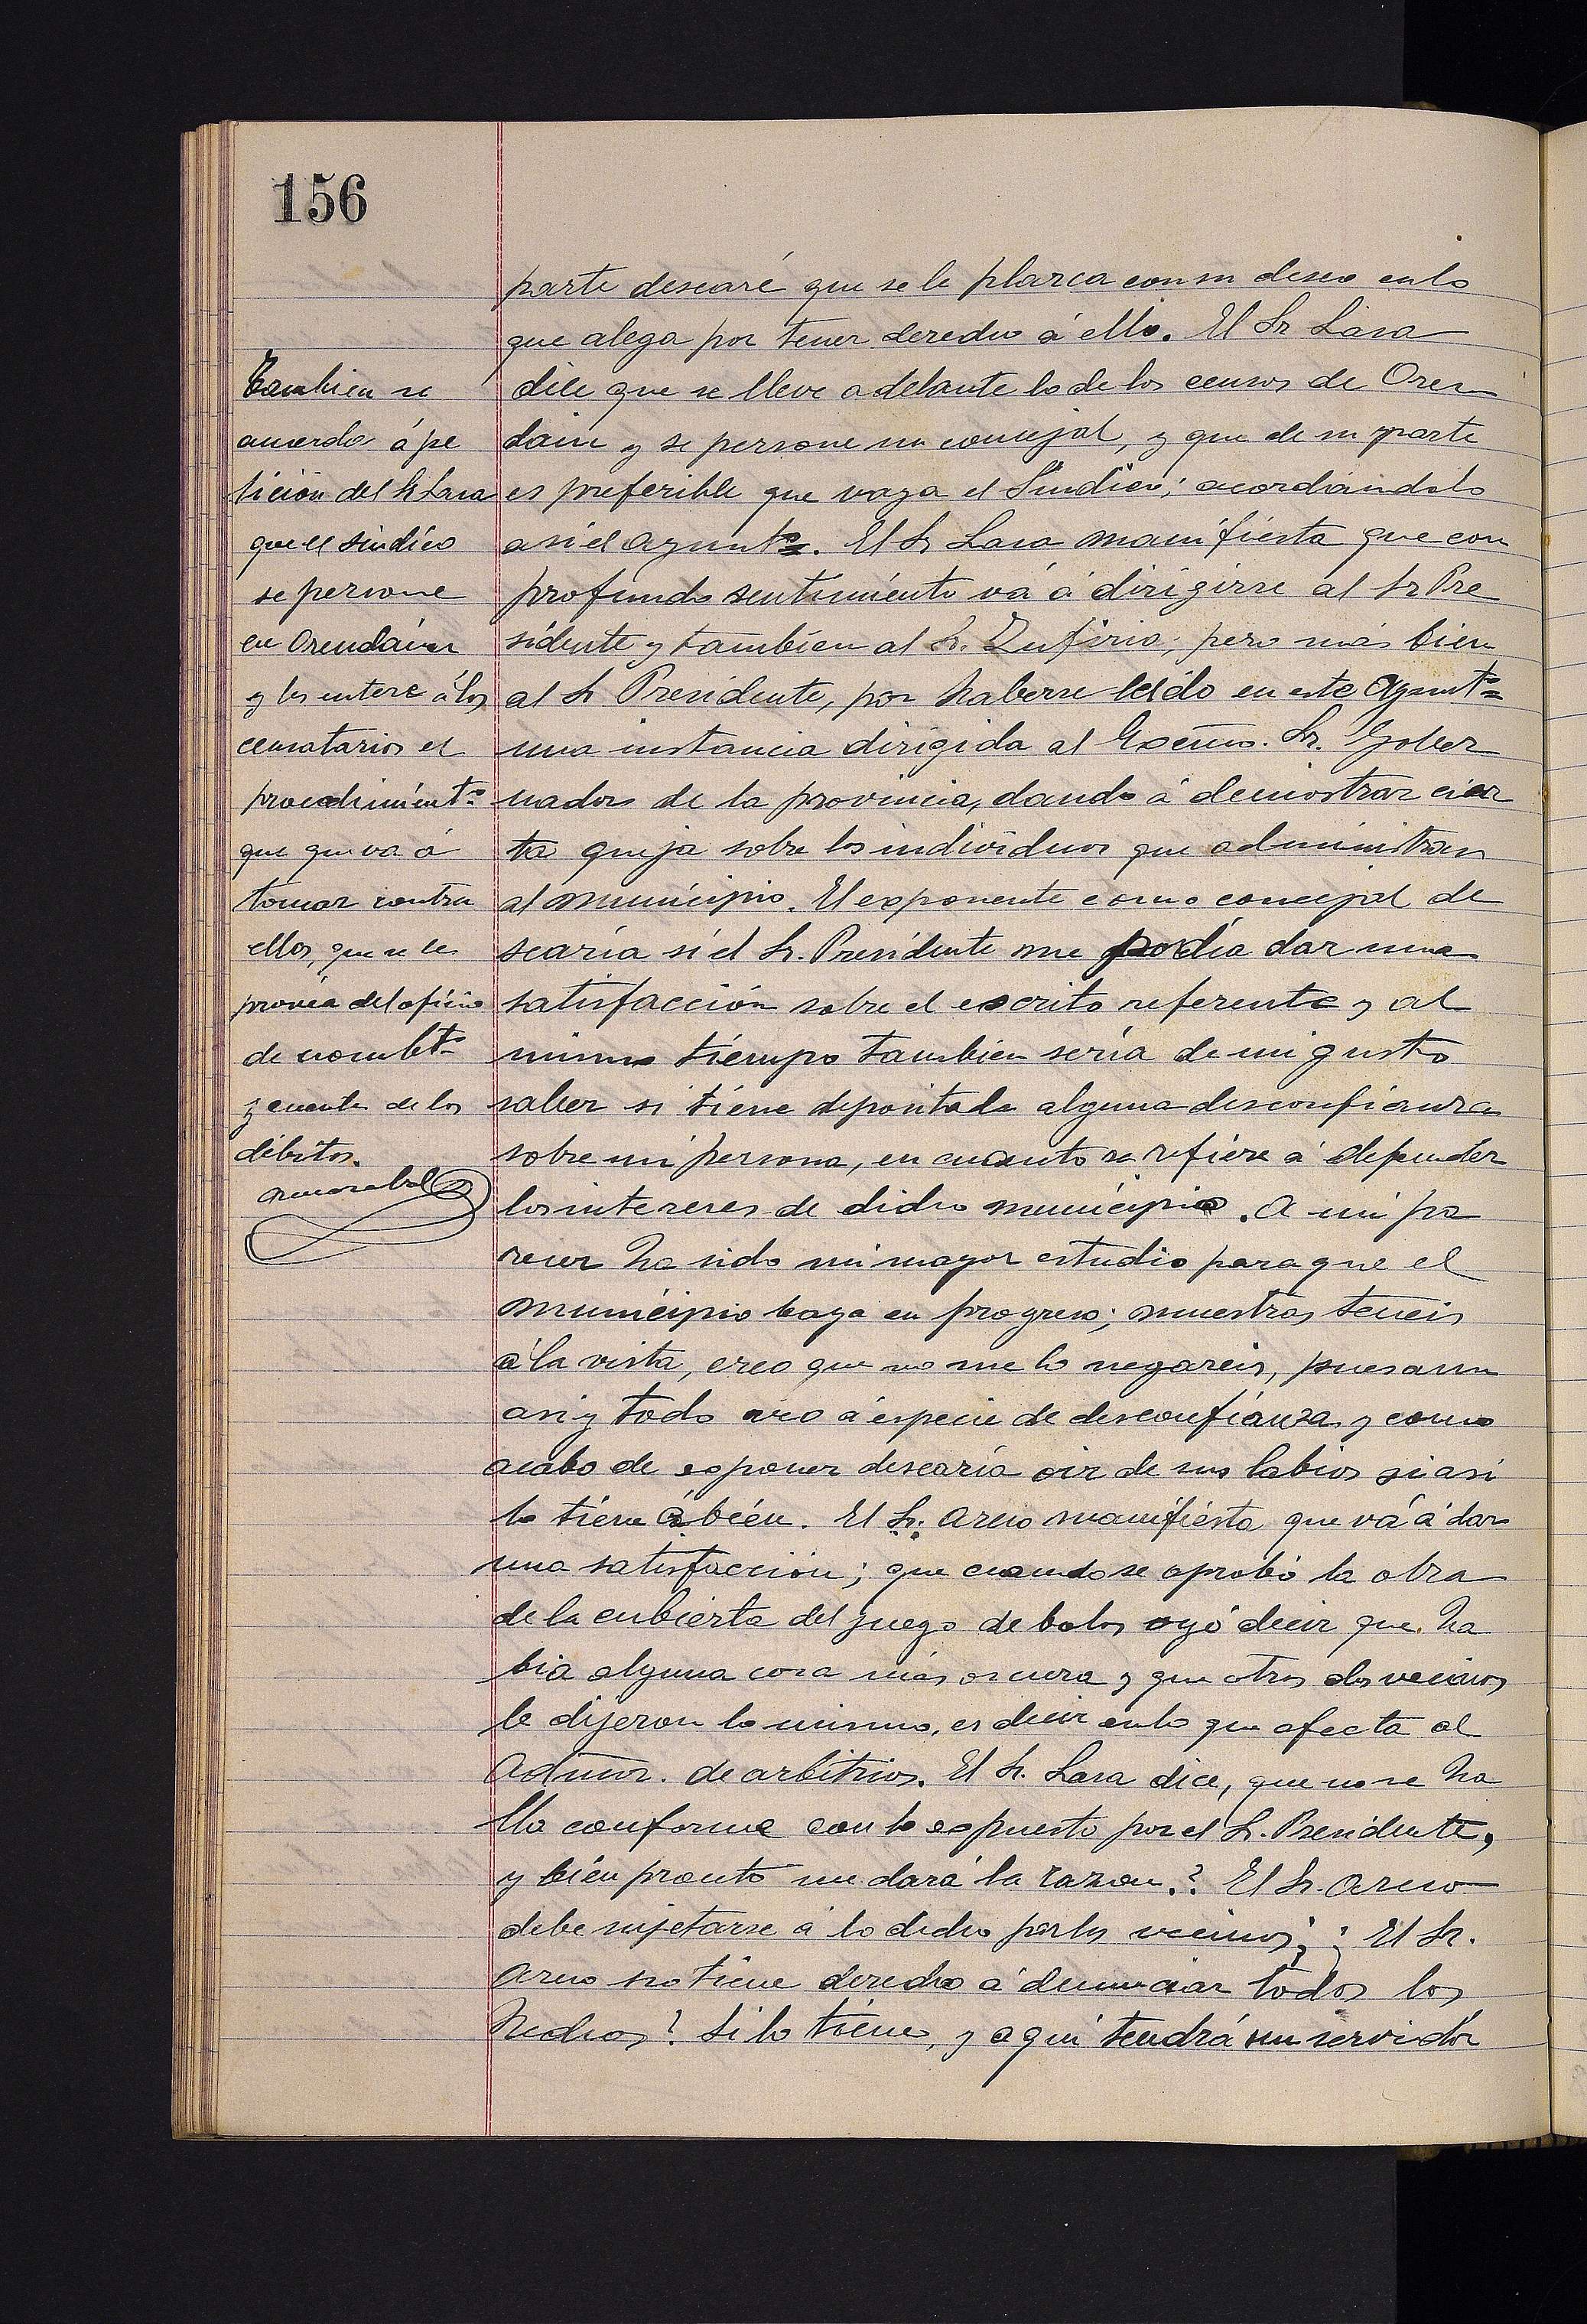 156
parte desearé que se le plazca con su deseo en lo
que alega por tener derecho á ello. El Sr Lasa
dice que se lleve adelante lo de los censos de Oren
dain y se persone un concejal, y que de su parte
es preferible que vaya el Sindico; acordándolo
asi el ayuntº. El Sr Lasa manifiesta que con
profundo sentimiento vá á dirigirse al Sr Pre
sidente y tambien al Sr. Zufiria; pero más bien
al Sr Presidente, por haberse leido en este Ayuntº
una instancia dirigida al Excmo. Sr. Gober
nador de la provincia, dando á demostrar cier
ta queja sobre los individuos que administran
al municipio. El exponente como concejal de
searia si el Sr. Presidente me podia dar una
satisfacción sobre el escrito referente y al
mismo tiempo tambien seria de mi gusto
saber si tiene depositada alguna desconfianza
sobre mi persona, en cuanto se refiere á defender
los intereses de dicho municipio. A mi pa
recer ha sido mi mayor estudio para que el
municipio baya en progreso; muestras teneis
á la vista, creo que no me lo negareis, pues aun
asi y todo creo á especie de desconfianza y como
acabo de exponer desearia oir de sus labios si asi
lo tiene á bien. El Sr. Areso manifiesta que vá á dar
una satisfacción; que cuando se aprobó la obra
de la cubierta del juego de bolos oyó decir que ha
bia alguna cosa más oscura y que otros dos vecinos
le dijeron lo mismo, es decir en lo que afecta al
Admor. de arbitrios. El Sr. Lasa dice, que no se ha
lla conforme con lo expuesto por el Sr. Presidente,
y bién pronto me dará la razon.? El Sr. Areso
debe sujetarse á lo dicho por los vecinos; ¿ El Sr.
Areso no tiene derecho á denunciar todos los
hechos? Si lo tiene, y aqui tendrá un servidor
Tambien se
acuerda á pe
tición del Sr Lasa
que el sindico
se persone
en Orendáin
y les entere á los
censatarios el
procedimientº
que que va á
tomar contra
ellos, que se le
provéa del oficio
de nombtº
y cuenta de los
débitos.